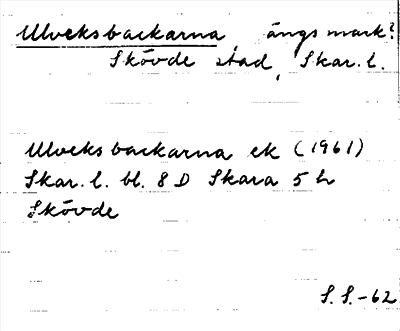 Ulveksbackarna, ängsmark?
Skövde stad, Skar. l.
Ulveksbackarna ek (1961)
Skar. l. bl. 8 D Skara 5 h
Skövde
S. S. -62